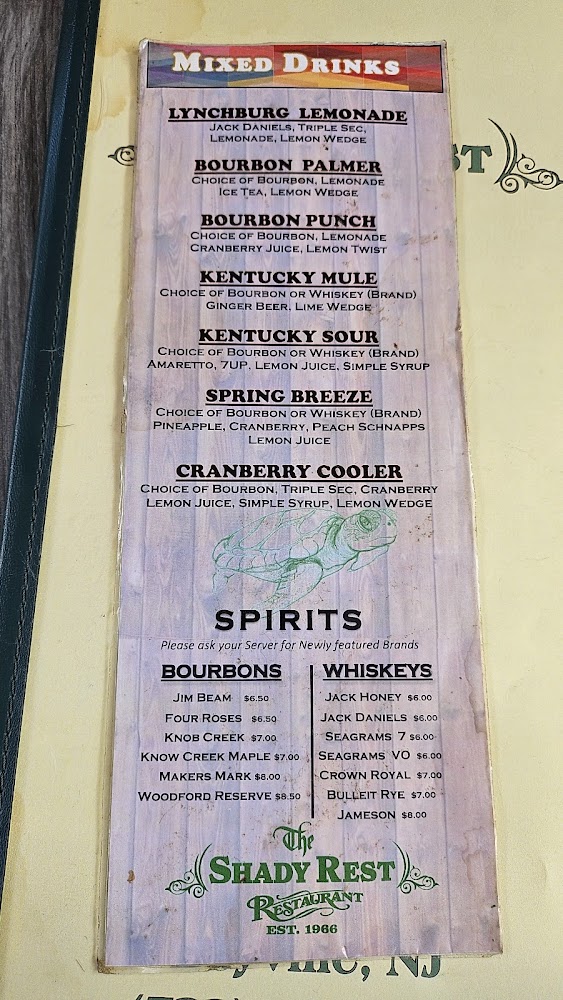 MIXED DRINKS
LYNCHBURG LEMONADE
JACK DANIELS, TRIPLE SEC,
LEMONADE, LEMON WEDGE
BOURBON PALMER
CHOICE OF BOURBON, LEMONADE
ICE TEA, LEMON WEDGE
BOURBON PUNCH
CHOICE OF BOURBON, LEMONADE
CRANBERRY JUICE, LEMON TWIST
KENTUCKY MULE
CHOICE OF BOURBON OR WHISKEY (BRAND)
GINGER BEER, LIME WEDGE
KENTUCKY SOUR
CHOICE OF BOURBON OR WHISKEY (BRAND)
AMARETTO, 7UP, LEMON JUICE, SIMPLE SYRUP
SPRING BREEZE
CHOICE OF BOURBON OR WHISKEY (BRAND)
PINEAPPLE, CRANBERRY, PEACH SCHNAPPS
LEMON JUICE
CRANBERRY COOLER
CHOICE OF BOURBON, TRIPLE SEC, CRANBERRY
LEMON JUICE, SIMPLE SYRUP, LEMON WEDGE
SPIRITS
Please ask your Server for Newly featured Brands
BOURBONS
JIM BEAM $6.50
FOUR ROSES $6.50
KNOB CREEK $7.00
KNOW CREEK MAPLE $7.00
MAKERS MARK $8.00
WOODFORD RESERVE $8.50
WHISKEYS
JACK HONEY $6.00
JACK DANIELS $6.00
SEAGRAMS 7 $6.00
SEAGRAMS VO $6.00
CROWN ROYAL $7.00
BULLEIT RYE $7.00
JAMESON $8.00
The
SHADY REST
RESTAURANT
EST. 1966
ST
yville, NJ